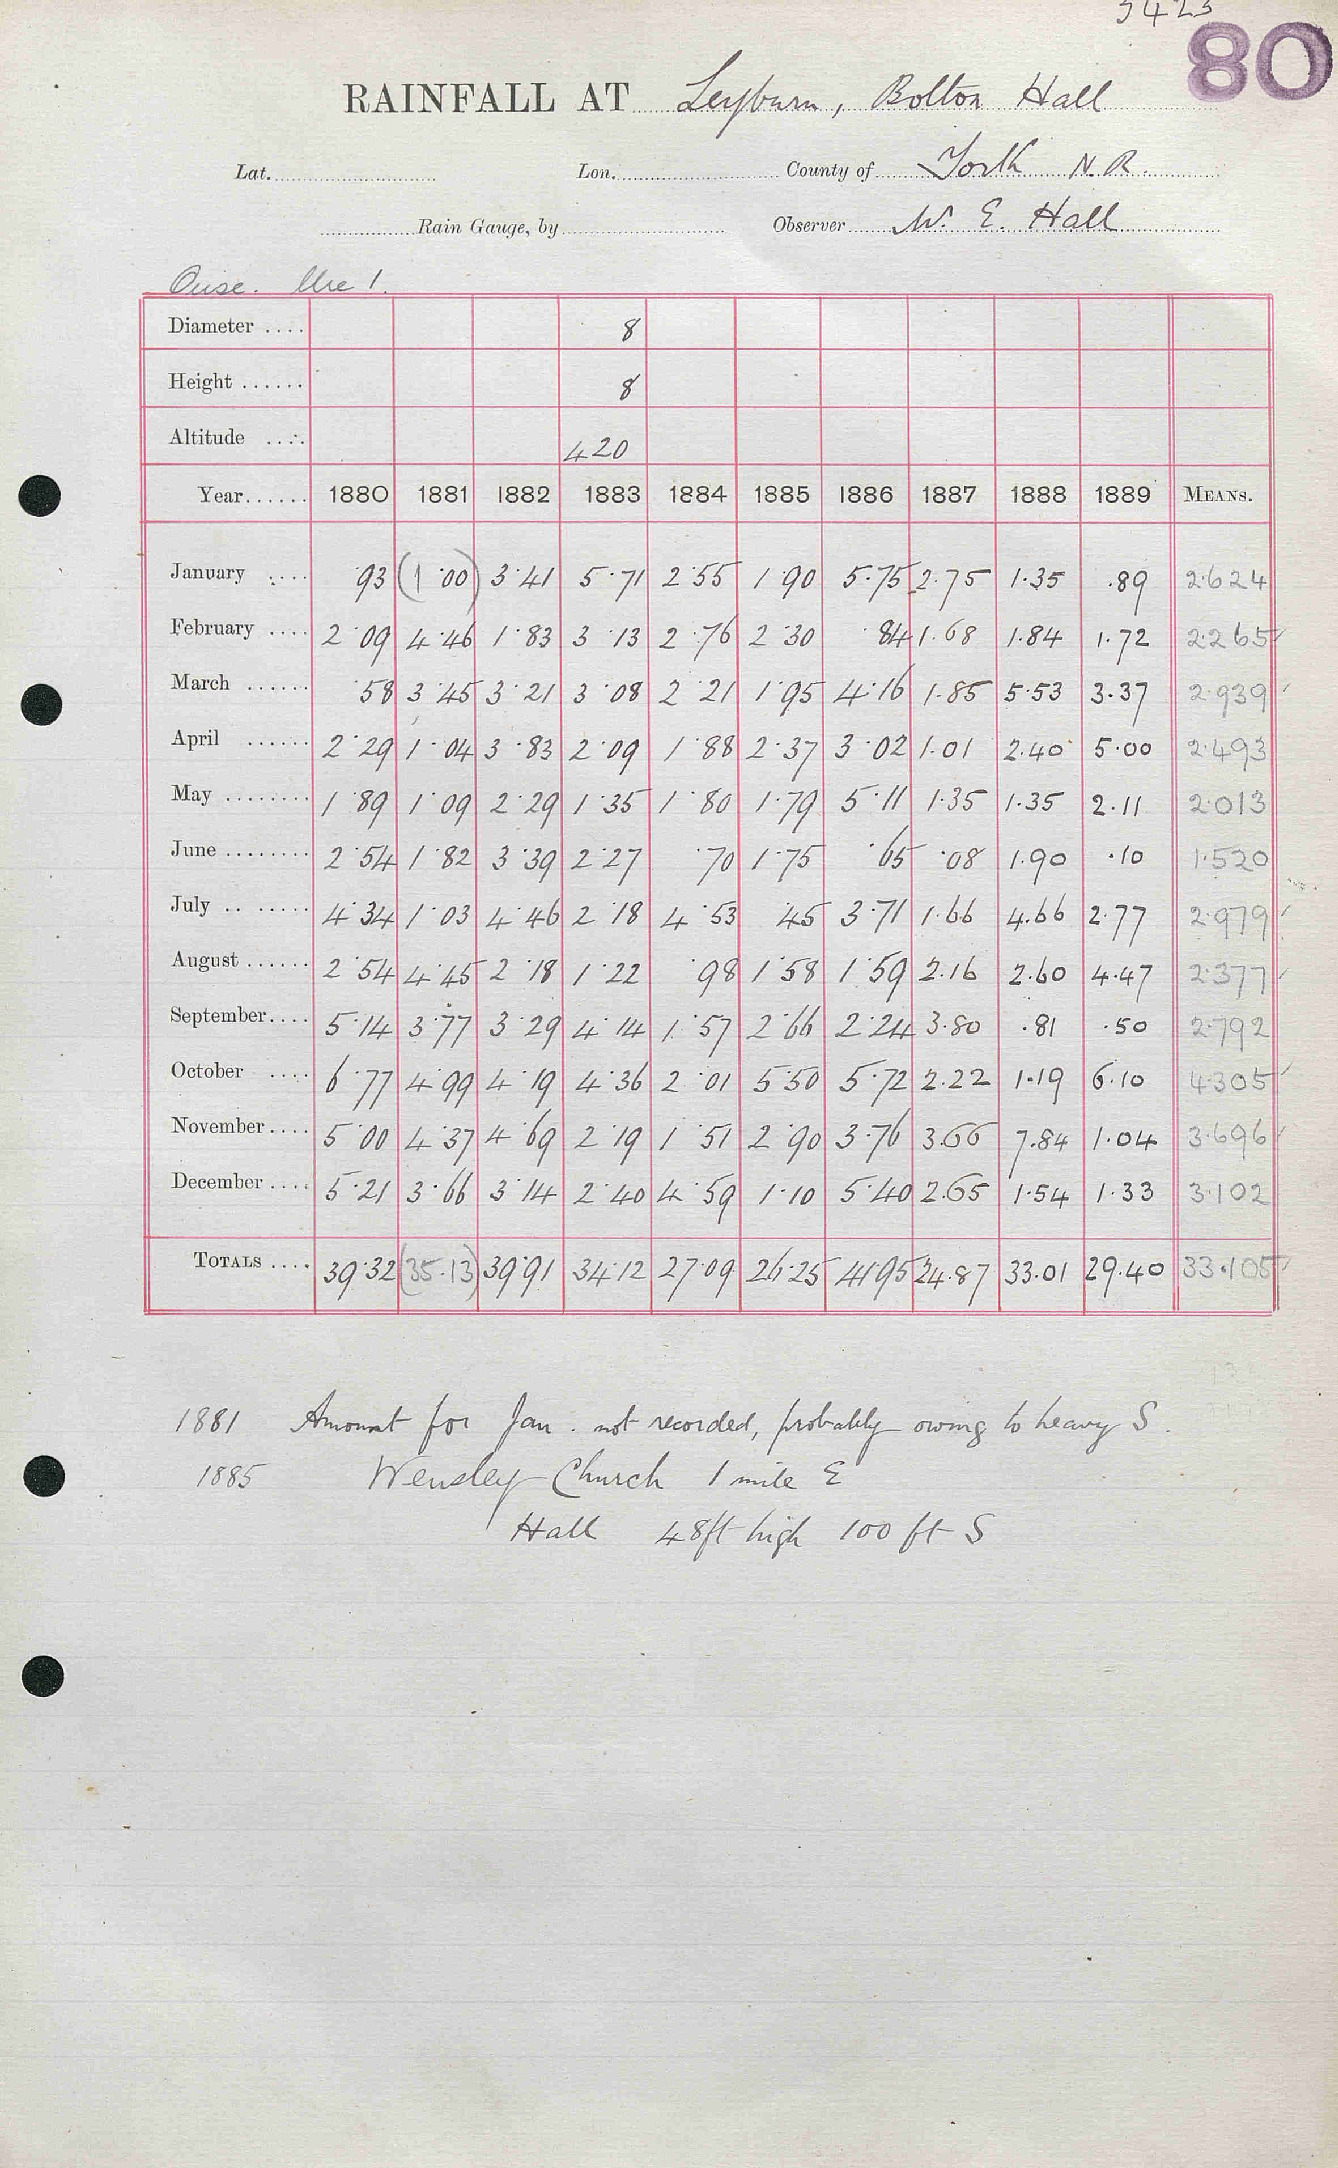 3423
80
RAINFALL AT Leyburn, Bolton Hall
Lat. Lon. County of York N.R.
Rain Gauge, by Observer W. E. Hall
Ouse. Ure 1.
Diameter .... 8
Height ...... 8
Altitude .... 420
Year...... 1880 1881 1882 1883 1884 1885 1886 1887 1888 1889 MEANS.
January .... ·93 (1·00) 3·41 5·71 2·55 1·90 5·75 2·75 1·35 .89 2·624
February .... 2·09 4·46 1·83 3·13 2·76 2·30 ·84 1·68 1·84 1·72 2·265
March ...... ·58 3·45 3·21 3·08 2·21 1·95 4·16 1·85 5·53 3·37 2·939
April ...... 2·29 1·04 3·83 2·09 1·88 2·37 3·02 1·01 2·40 5·00 2·493
May ........ 1·89 1·09 2·29 1·35 1·80 1·79 5·11 1·35 1·35 2·11 2·013
June ........ 2·54 1·82 3·39 2·27 ·70 1·75 ·65 ·08 1·90 ·10 1·520
July .. ..... 4·34 1·03 4·46 2·18 4·53 ·45 3·71 1·66 4·66 2·77 2·979
August ...... 2·54 4·45 2·18 1·22 ·98 1·58 1·59 2·16 2·60 4·47 2·377
September.... 5·14 3·77 3·29 4·14 1·57 2·66 2·24 3·80 .81 ·50 2·792
October .... 6·77 4·99 4·19 4·36 2·01 5·50 5·72 2·22 1·19 6·10 4·305
November.... 5·00 4·37 4·69 2·19 1·51 2·90 3·76 3·66 7·84 1·04 3·696
December.... 5·21 3·66 3·14 2·40 4·59 1·10 5·40 2·65 1·54 1·33 3·102
TOTALS .... 39·32 (35·13) 39·91 34·12 27·09 26·25 41·95 24·87 33·01 29·40 33·105
1881 Amount for Jan. not recorded, probably owing to heavy S.
1885 Wensley Church 1 mile E
Hall 48ft high 100 ft S